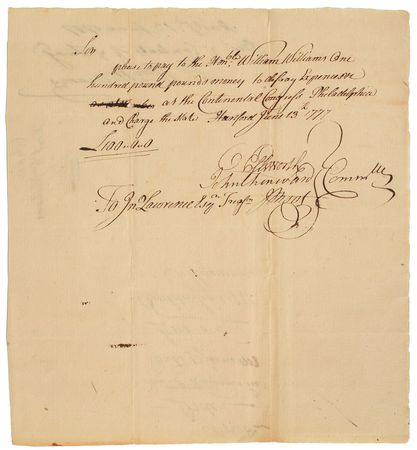 Sir
please to pay to the Honble. William Williams One
hundred pound pounds money to defray Expences
at the Continental Congress Philadelphia
and Charge the State Hartford June 13th 1777
£100..0..0
O Ellsworth
John Chenward Comtte
To Jn Lawrence Esqr Treasr